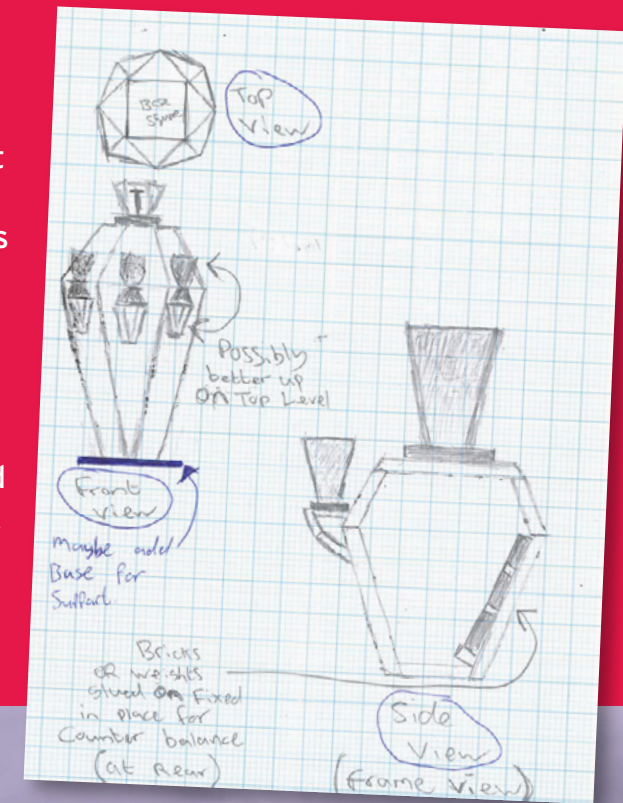 Base
Square
Top
View
T
Possibly
better up
on Top Level
Front
view
maybe add
Base for
Support
Bricks
or weights
glued or Fixed
in place for
Counter balance
(at Rear)
Side
View
(frame view)
t
s
d